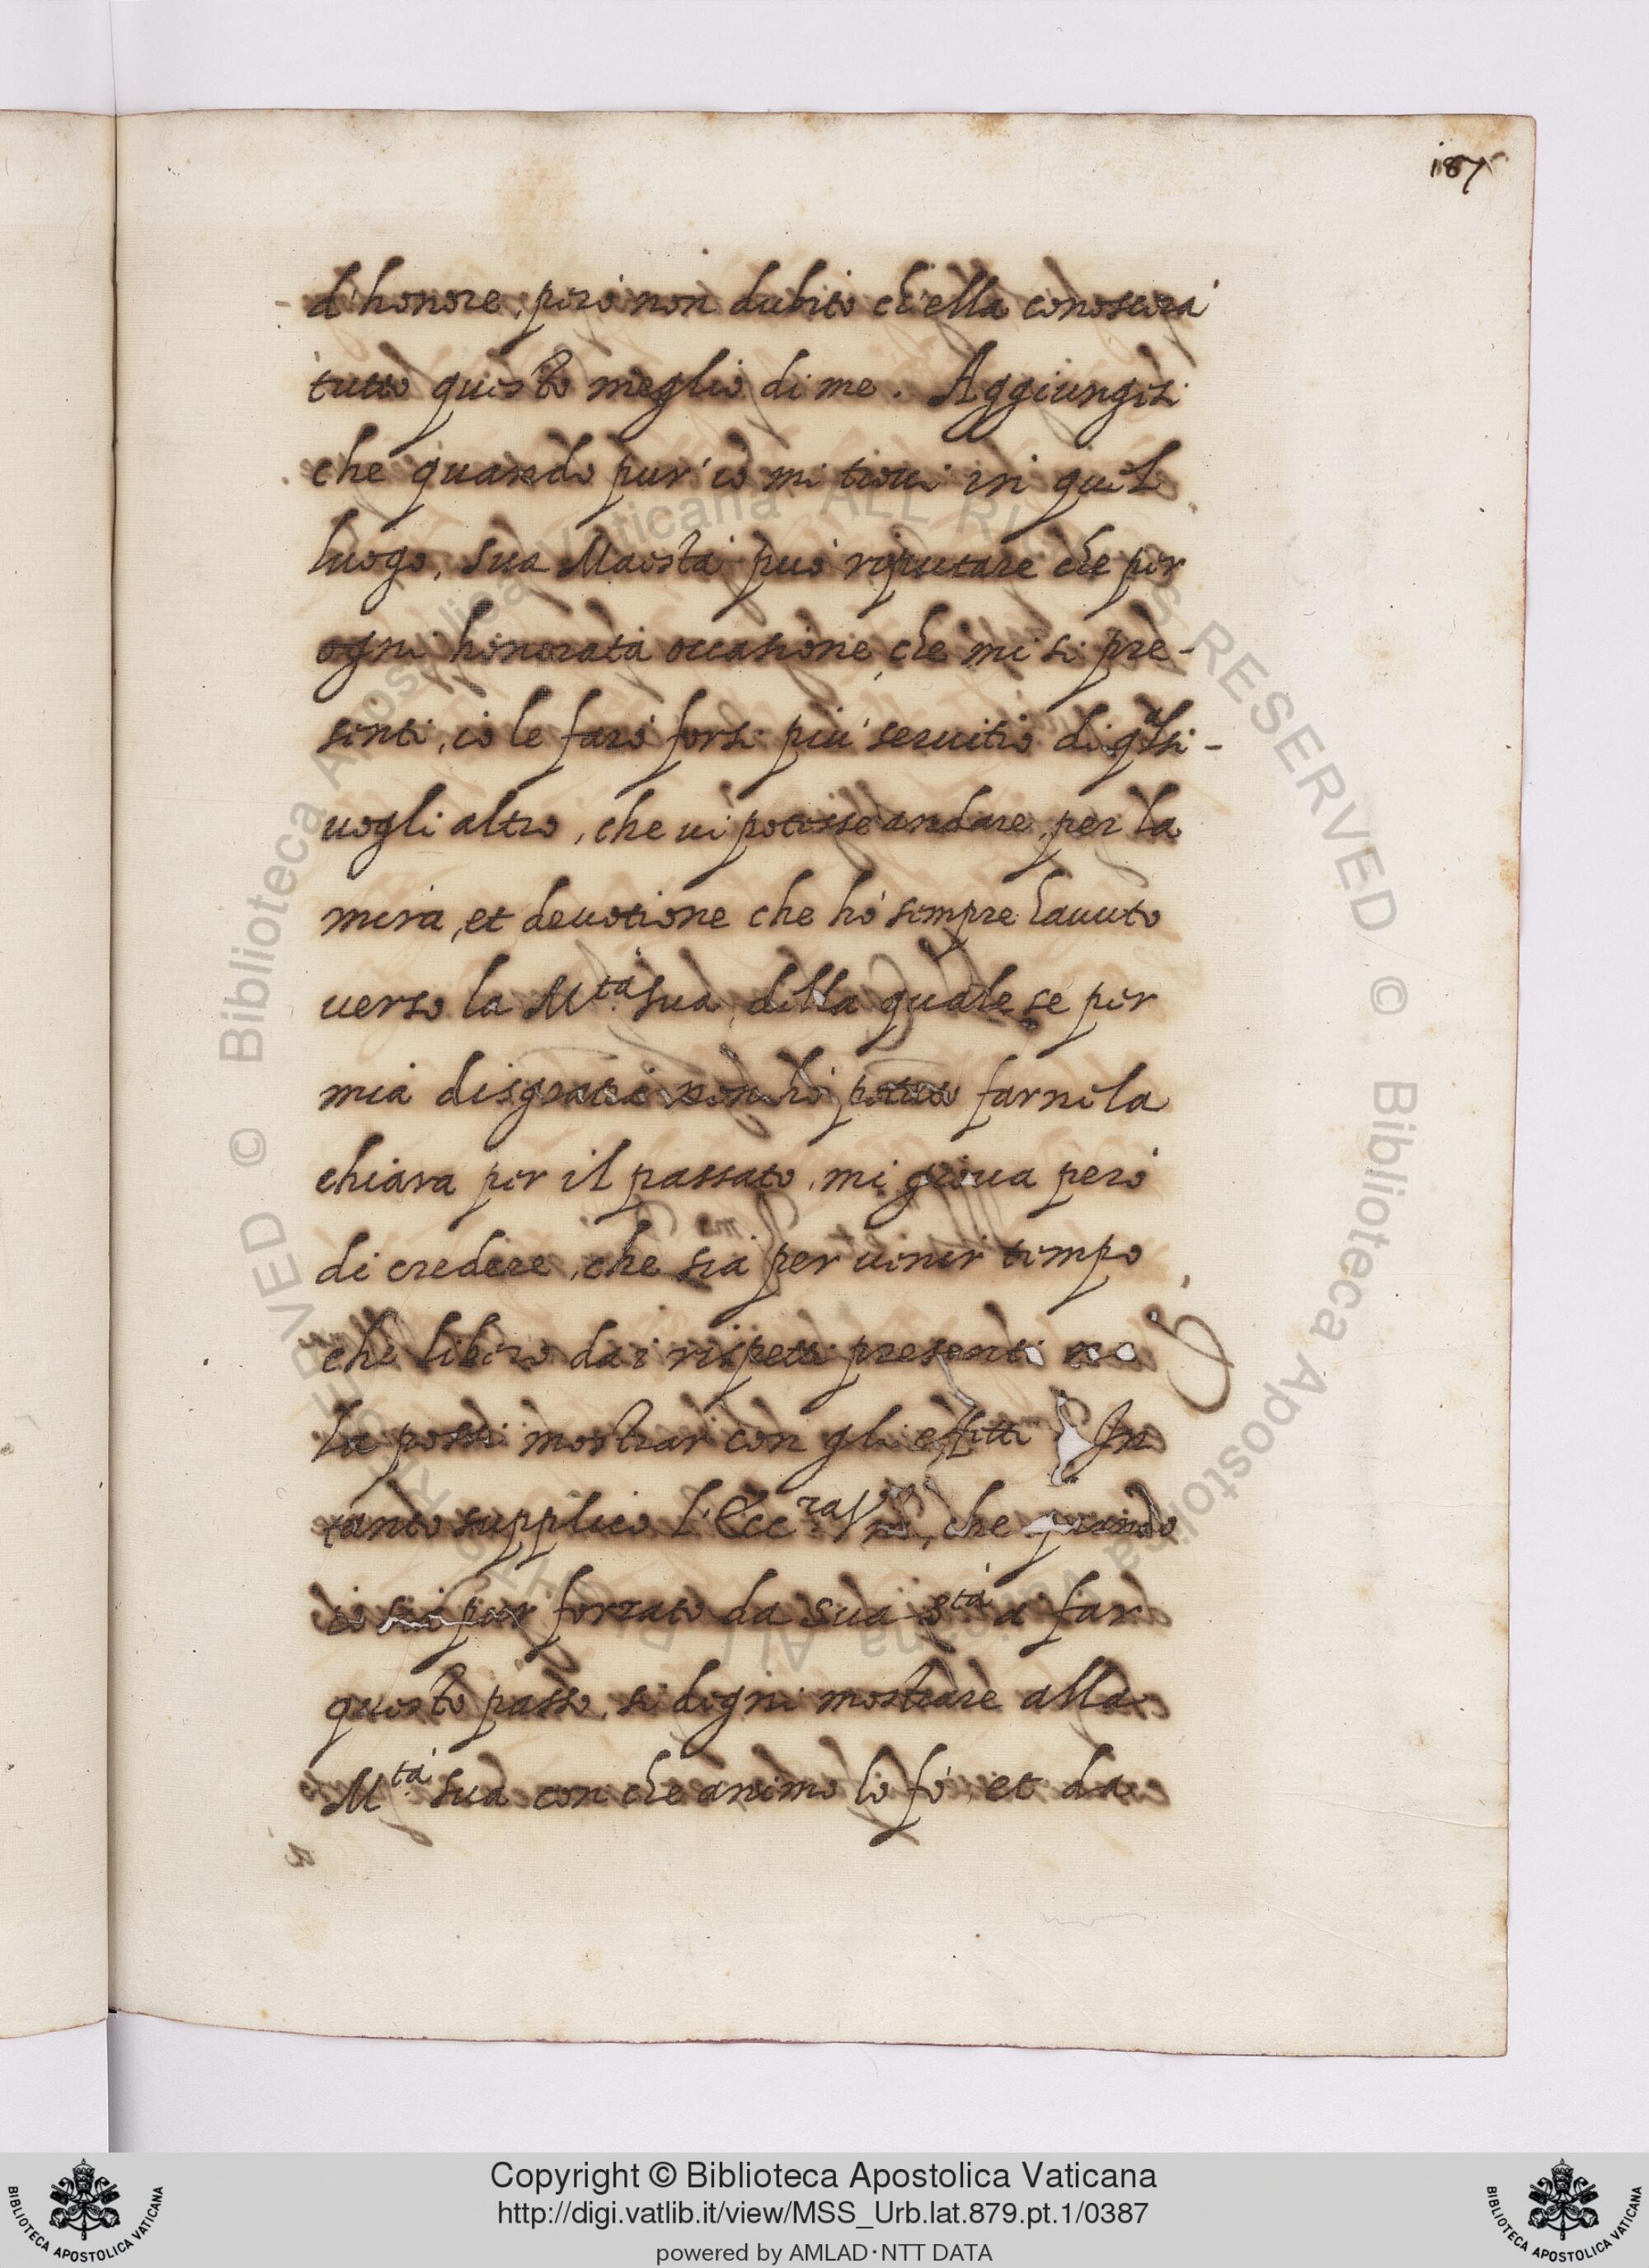 187
d'honore, però non dubito ch'ella conoscerà
tutto questo meglio di me. Aggiungesi
che quando pur' io mi trovi in quel
luogo, sua Maestà può reputare che per
ogni honorata occasione, che mi si pre-
senti, io le farò forse più servitio di qalsi-
vogli altro, che vi potesse andare, per la
mera, et devotione che hò sempre havuto
verso la Mtà sua, della quale se per
mia disgratia non hò potuto farnela
chiara per il passato, mi giova però
di credere, che sia per venir tempo
che libero dai rispetti presenti
la possi mostrar con gli effetti In
tanto supplico l'Eccza Vra, che quando
io sia pur forzato da sua Stà a far
questo passo, si degni mostrare alla
Mtà sua con che animo lo fò, et da
© Biblioteca Apostolica Vaticana ALL RIGHTS RESERVED © Biblioteca Apostolica Vaticana ALL RIGHTS RESERVED
BIBLIOTECA APOSTOLICA VATICANA
Copyright © Biblioteca Apostolica Vaticana
http://digi.vatlib.it/view/MSS_Urb.lat.879.pt.1/0387
powered by AMLAD·NTT DATA
BIBLIOTECA APOSTOLICA VATICANA